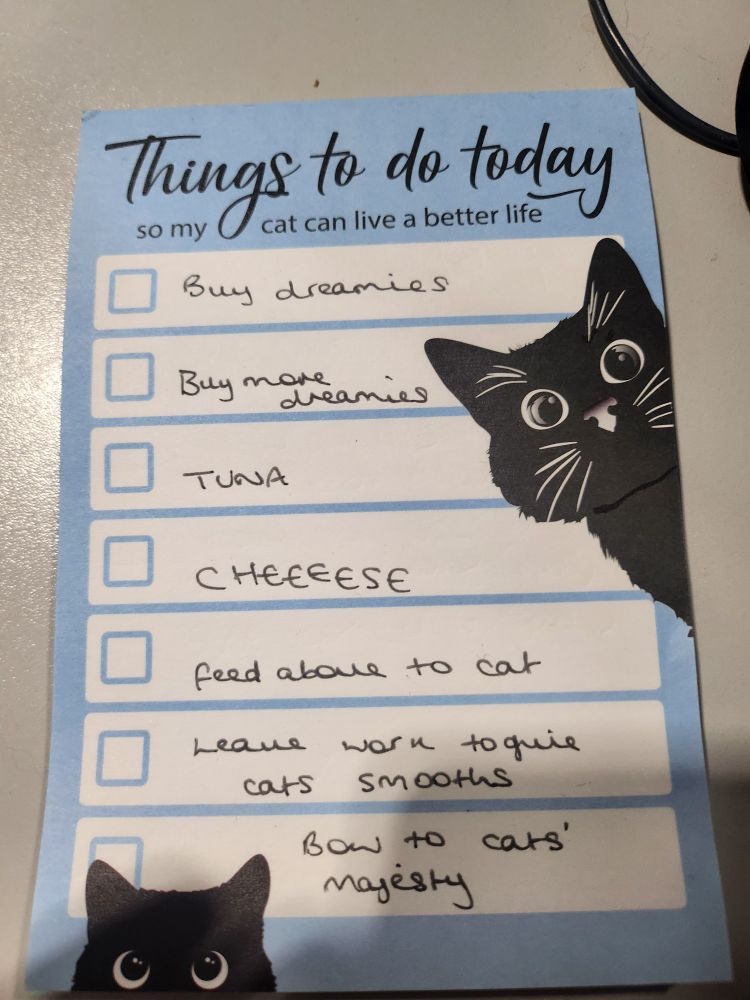 Things to do today
so my cat can live a better life
Buy dreamies
Buy more
dreamies
TUNA
CHEEEESE
feed above to cat
Leave work to give
cats smooths
Bow to cats'
majesty